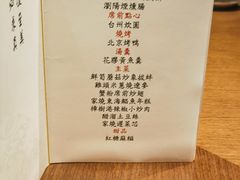 瀏陽煙燻腸
席前點心
台州炊圓
燒烤
北京烤鴨
湯羹
花膠黃魚羹
主菜
鮮筍蘑菇炒象拔蚌
雞頭米蔥燒遼參
蟹粉席前炒翅
家燒東海鯧魚年糕
樟樹港辣椒小炒肉
醋溜土豆絲
家燒遲菜芯
甜品
紅糖麻糍